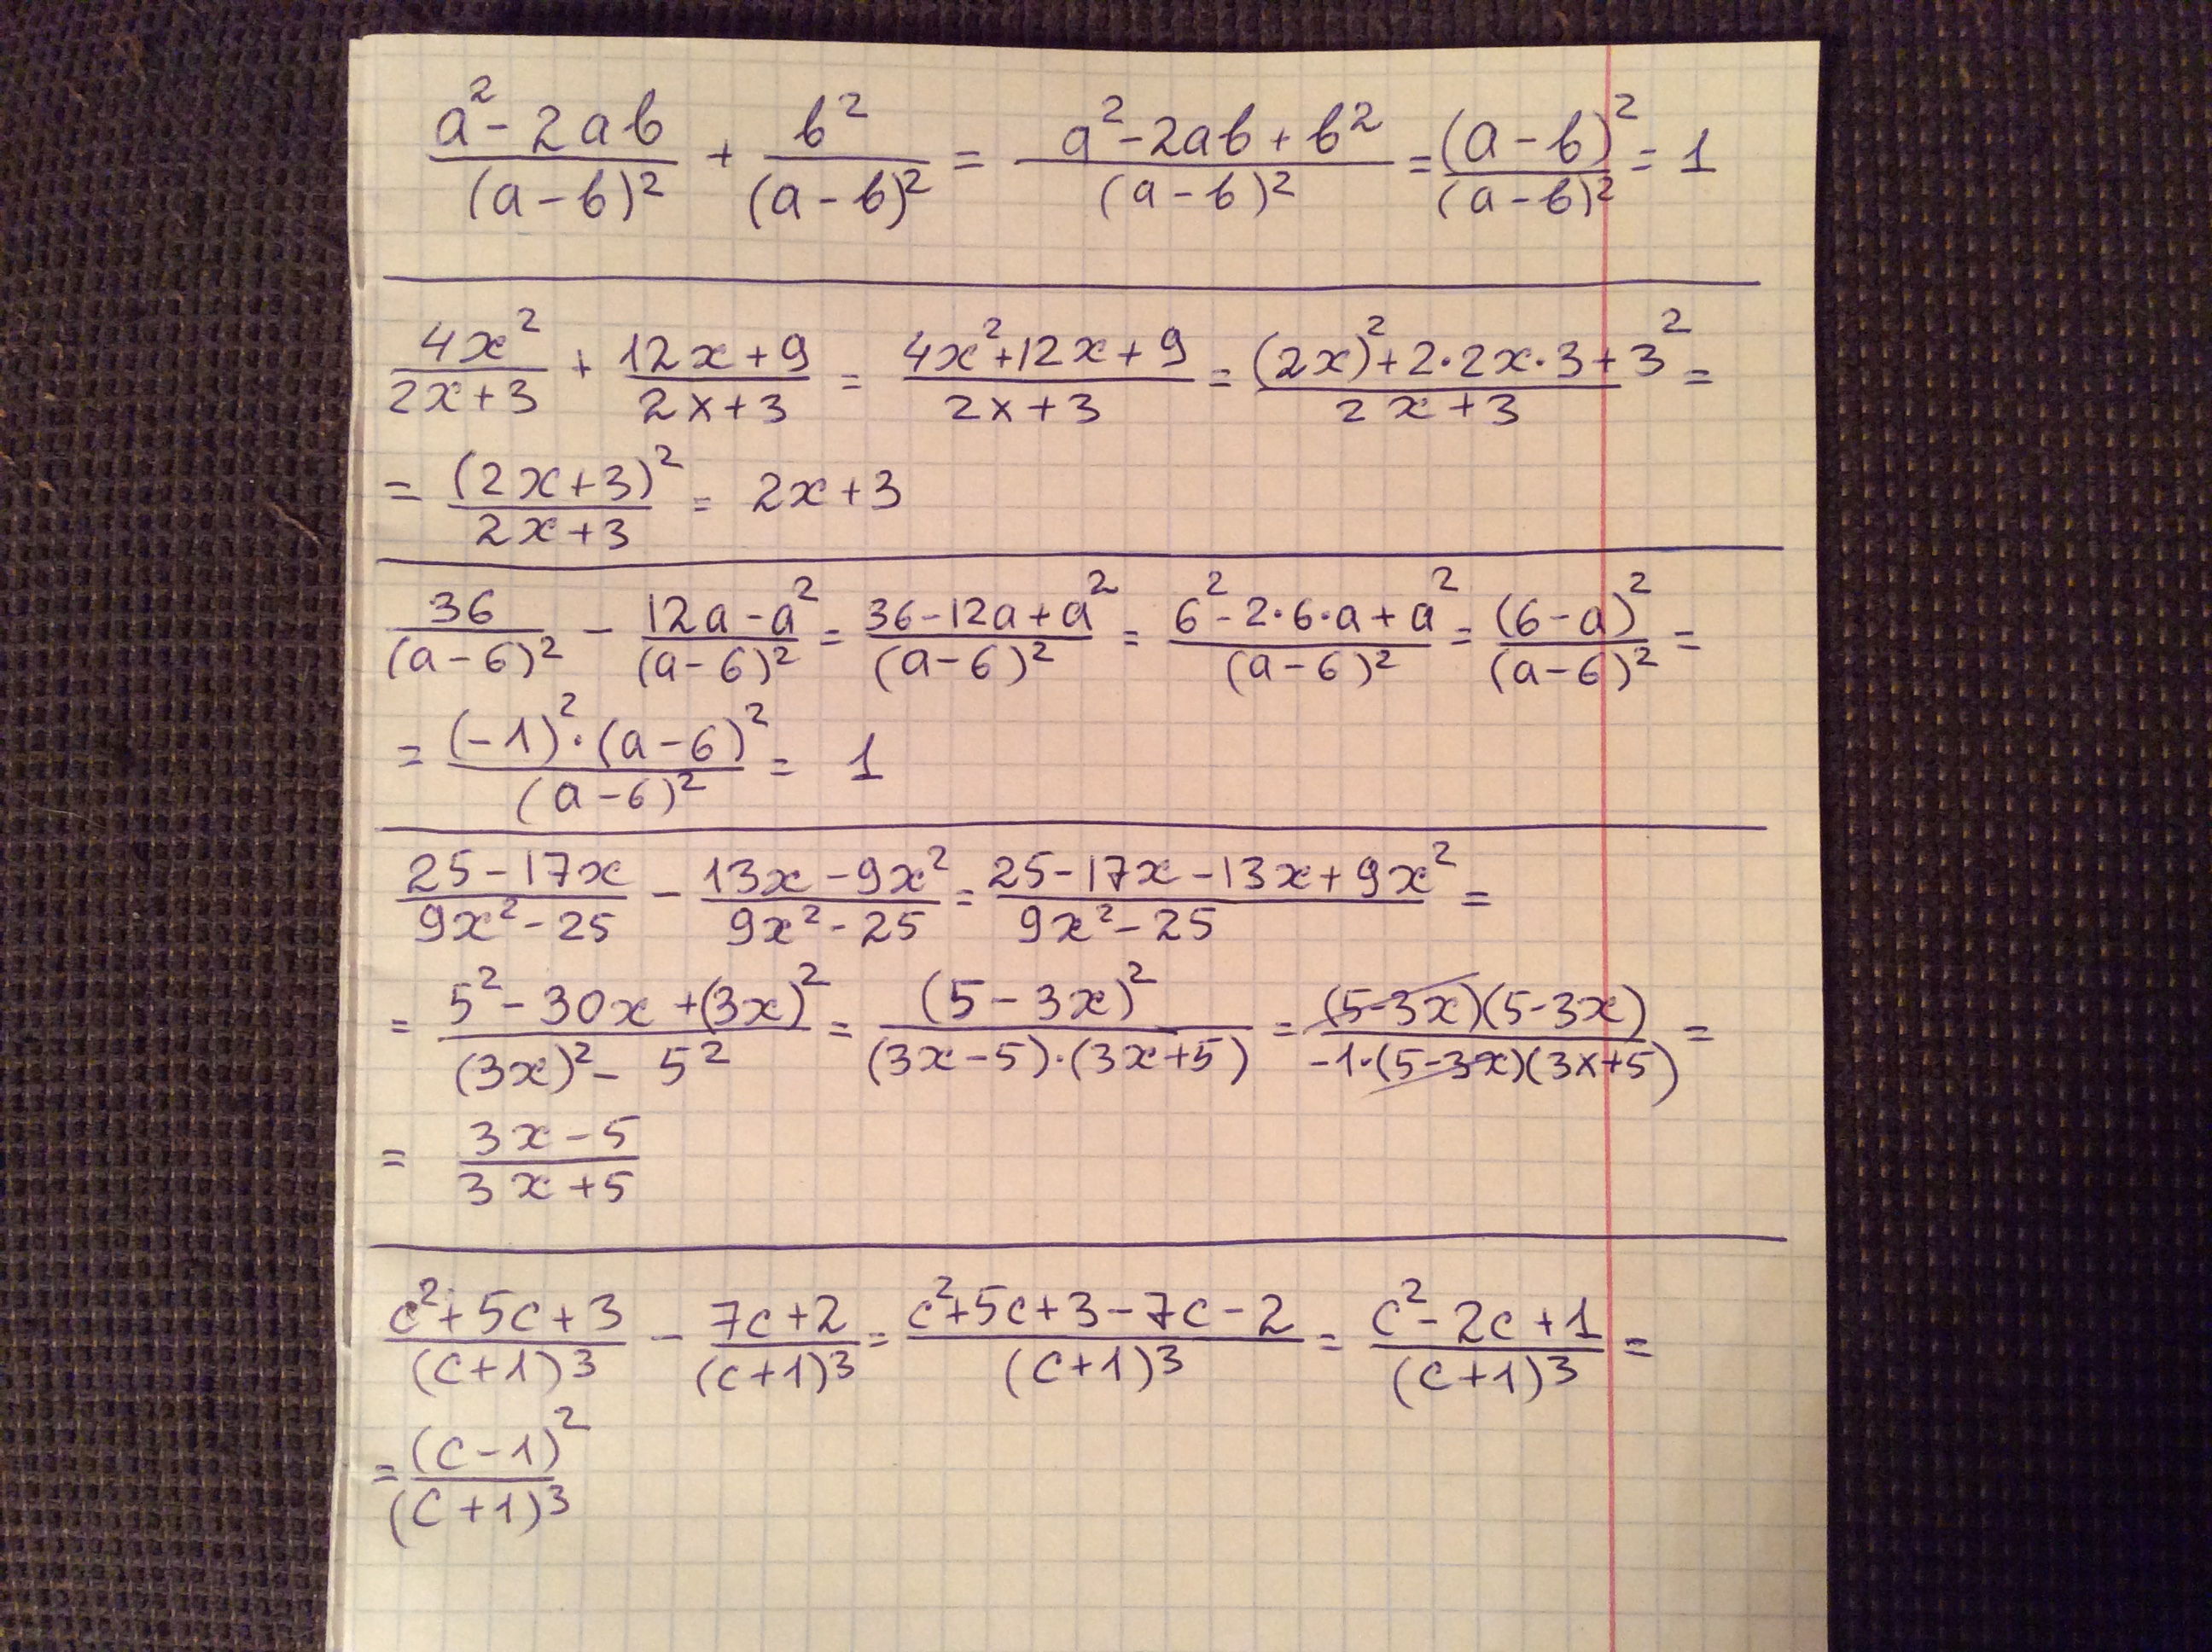 (a² - 2ab)/(a - b)² + b²/(a - b)² = (a² - 2ab + b²)/(a - b)² = (a - b)²/(a - b)² = 1
4x²/(2x + 3) + (12x + 9)/(2x + 3) = (4x² + 12x + 9)/(2x + 3) = ((2x)² + 2·2x·3 + 3²)/(2x + 3) =
= (2x + 3)²/(2x + 3) = 2x + 3
36/(a - 6)² - (12a - a²)/(a - 6)² = (36 - 12a + a²)/(a - 6)² = (6² - 2·6·a + a²)/(a - 6)² = (6 - a)²/(a - 6)² =
= ((-1)²·(a - 6)²)/(a - 6)² = 1
(25 - 17x)/(9x² - 25) - (13x - 9x²)/(9x² - 25) = (25 - 17x - 13x + 9x²)/(9x² - 25) =
= (5² - 30x + (3x)²)/((3x)² - 5²) = (5 - 3x)²/((3x - 5)·(3x + 5)) = ((5 - 3x)(5 - 3x))/(-1·(5 - 3x)(3x + 5)) =
= (3x - 5)/(3x + 5)
(c² + 5c + 3)/(c + 1)³ - (7c + 2)/(c + 1)³ = (c² + 5c + 3 - 7c - 2)/(c + 1)³ = (c² - 2c + 1)/(c + 1)³ =
= (c - 1)²/(c + 1)³